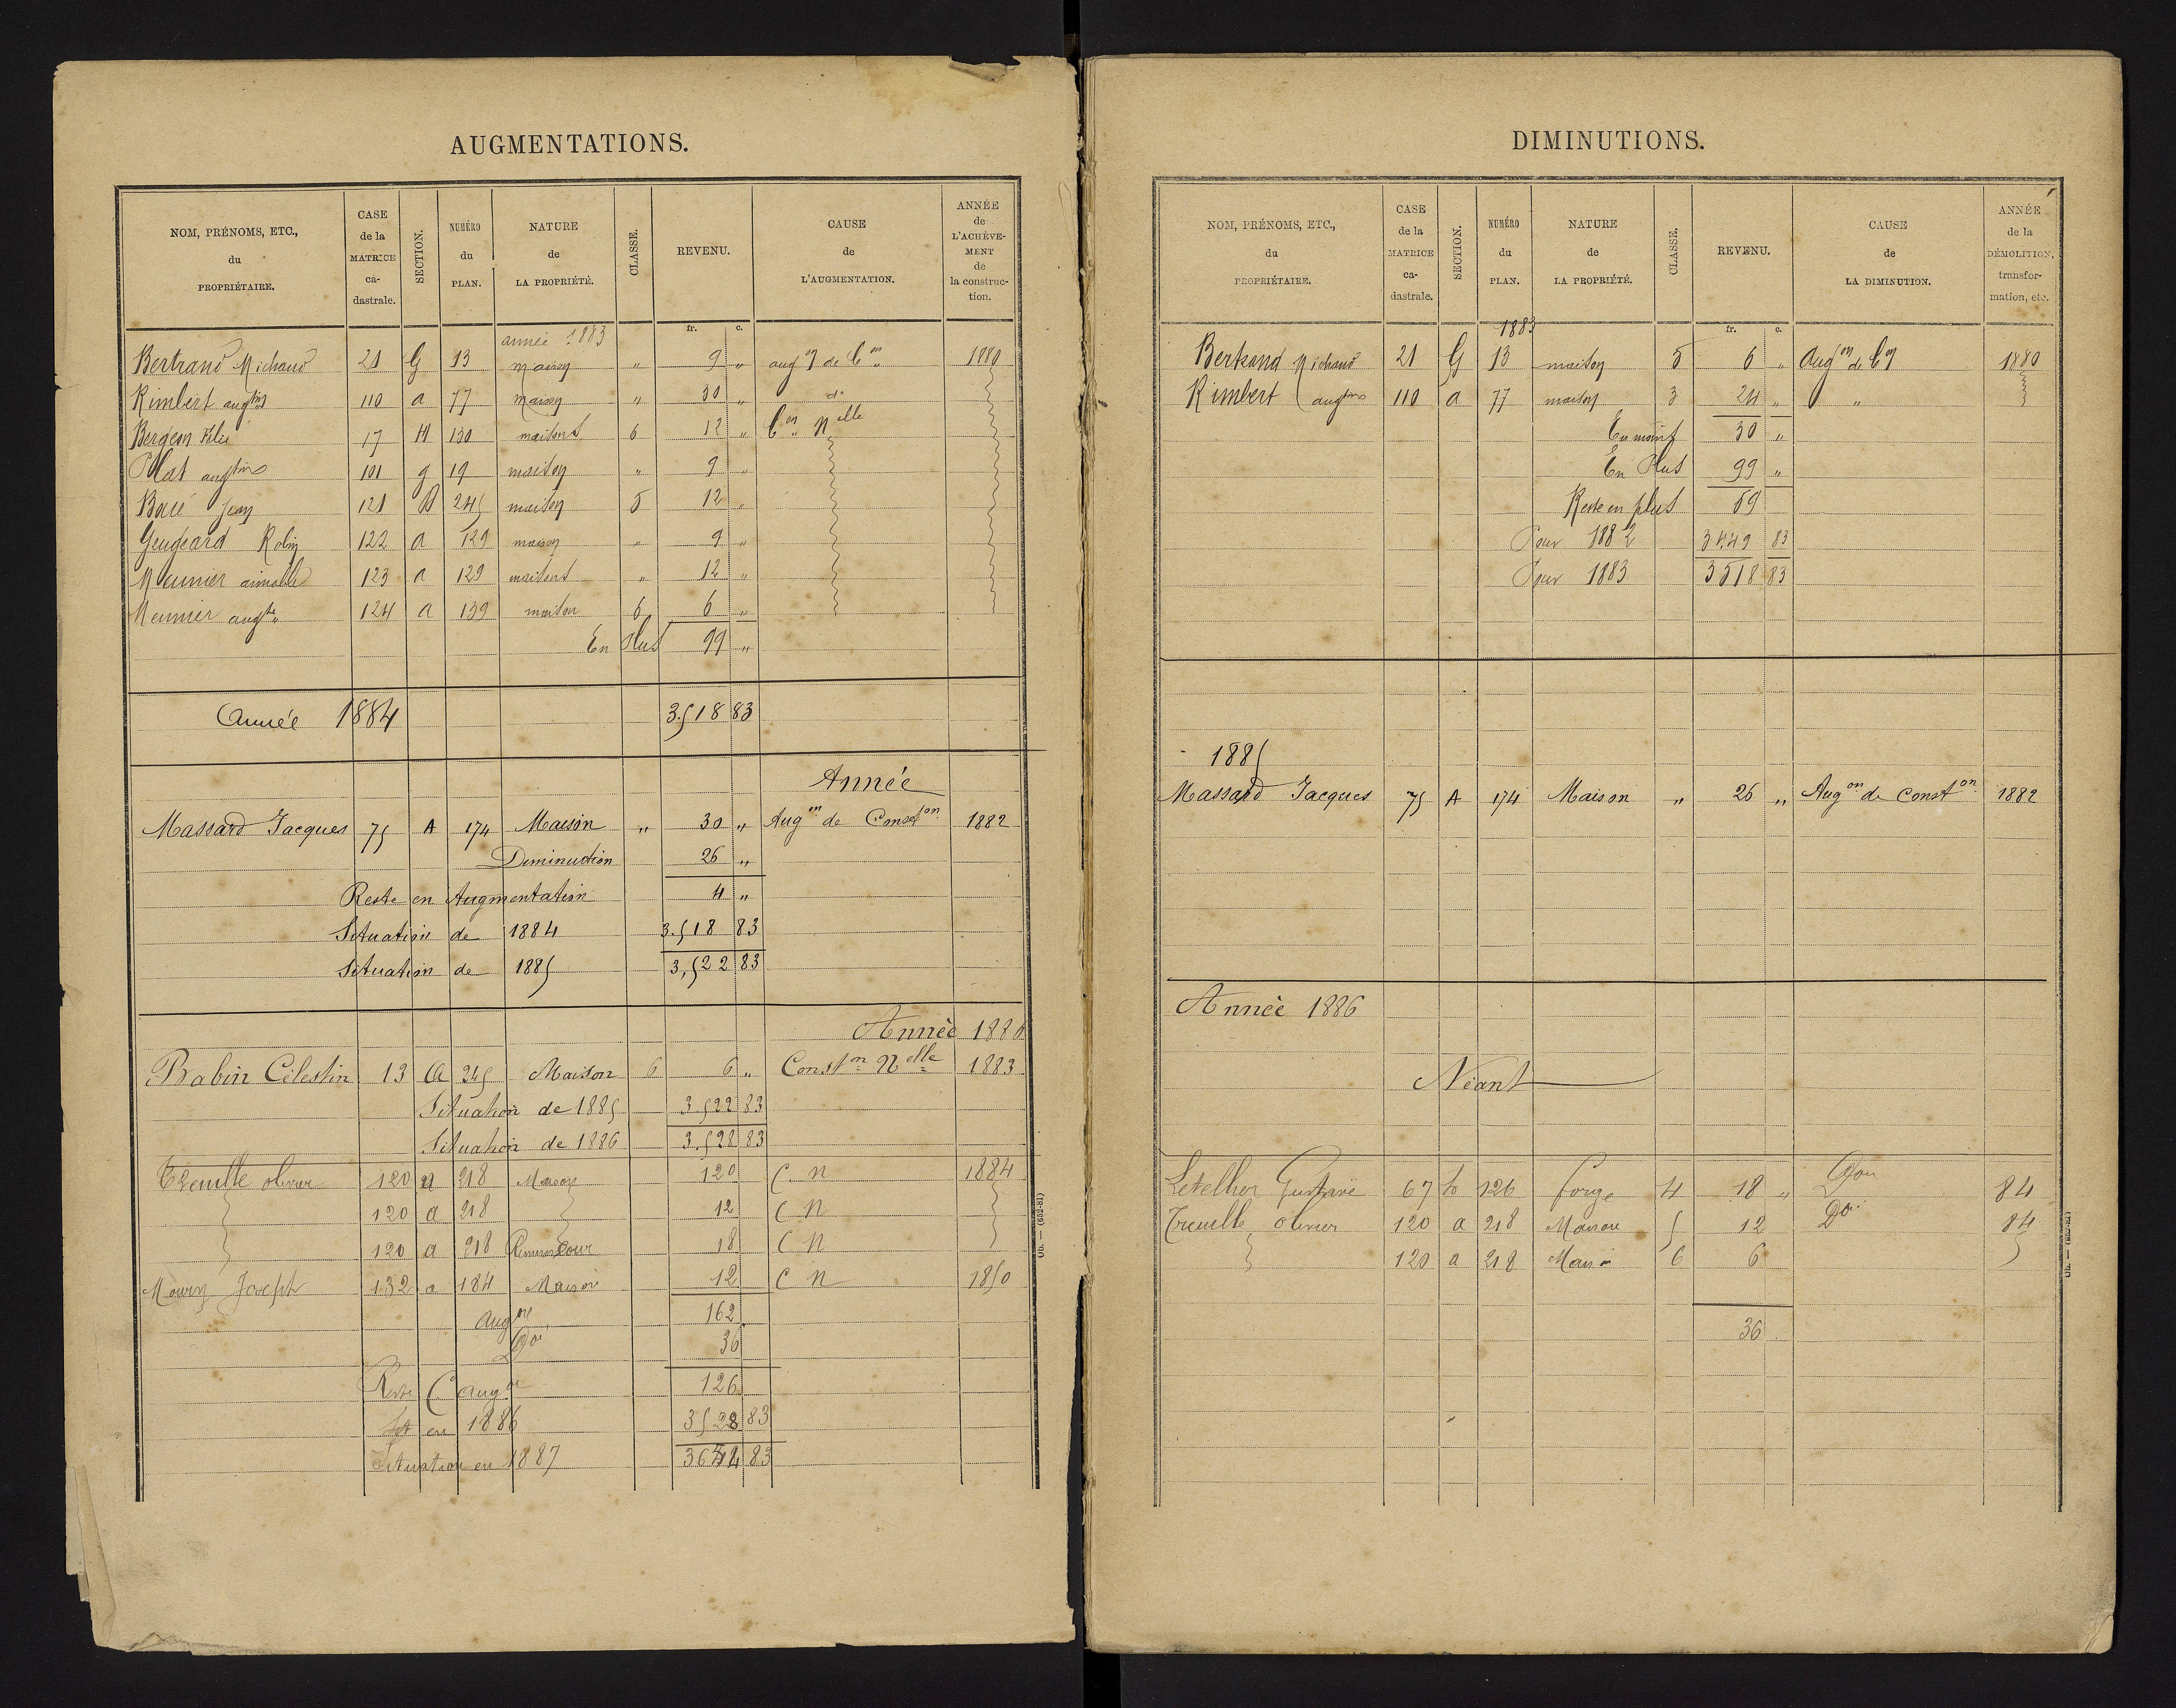 AUGMENTATIONS.
NOM, PRÉNOMS, ETC., du PROPRIÉTAIRE. CASE de la MATRICE ca- dastrale. SECTION. NUMÉRO du PLAN. NATURE de LA PROPRIÉTÉ. CLASSE. REVENU. CAUSE de L'AUGMENTATION. ANNÉE de L'ACHÈVE- MENT de la construc- tion.
fr. c.
année 1883
Bertrand Michaud 21 G 13 maison " 9 " aug on de Con 1880
Rimbert augtin 110 a 77 maison " 30 " do
Bergeon 17 H 130 maisons 6 12 " Con Nelle
Plat augtin 101 g 19 maison " 9 "
Boué Jean 121 B 245 maison 5 12 "
Geugeard Robin 122 a 129 maison " 9 "
Meunier aimable 123 a 129 maisons " 12 "
Meunier augte 124 a 139 maison 6 6 "
En Plus 99 "
Année 1884 3.518 83
Année
Massard Jacques 75 A 174 Maison " 30 " Augon de Conston 1882
Diminution 26 "
Reste en Augmentation 4 "
Situation de 1884 3.518 83
Situation de 1885 3,522 83
Année 1886
Babin Célestin 13 A 345 Maison 6 6 " Constn Nelle 1883
Situation de 1885 3.522 83
Situation de 1886 3.528 83
Treuille olivier 120 a 218 Maison 120 C. N 1884
120 a 218 12 C N
120 a 218 18 C N
Joseph 132 a 184 Maison 12 C N 1850
Augon 162
Don 36
Reste augon 126
Sit en 1886 3528 83
Situation en 1887 3654 83
Ob. — (652-81)
DIMINUTIONS.
NOM, PRÉNOMS, ETC., du PROPRIÉTAIRE. CASE de la MATRICE ca- dastrale. SECTION. NUMÉRO du PLAN. NATURE de LA PROPRIÉTÉ. CLASSE. REVENU. CAUSE de LA DIMINUTION. ANNÉE de la DÉMOLITION, transfor- mation, etc.
fr. c.
1883
Bertrand Michaud 21 G 13 maison 5 6 " Augon de Con 1880
Rimbert augtin 110 a 77 maison 3 24 " "
En moins 30 "
En Plus 99 "
Reste en plus 69
Pour 1882 3449 83
Pour 1883 3518 83
1885
Massard Jacques 75 A 174 Maison " 26 " Augon de Conston 1882
Année 1886
Néant
Letellier Gustave 67 h 126 forge 4 18 " Don 84
Treuille olivier 120 a 218 Maison 5 12 Don 84
120 a 218 Maison 6 6
36
Ob. — (652-81)